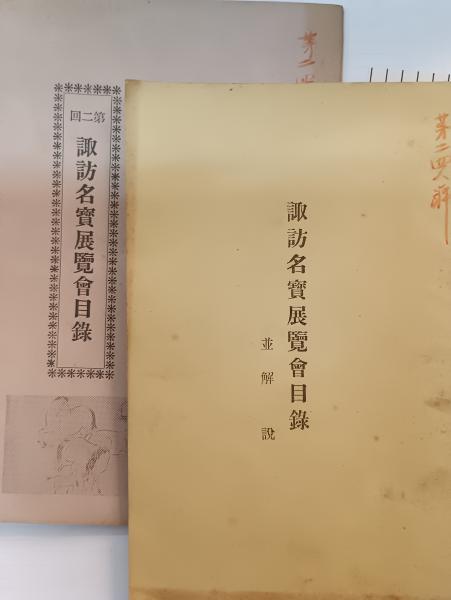 第二回
諏訪名寶展覽會目錄
諏訪名寶展覽會目錄
並解説